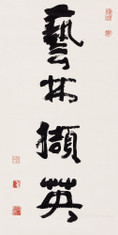 藝林擷英